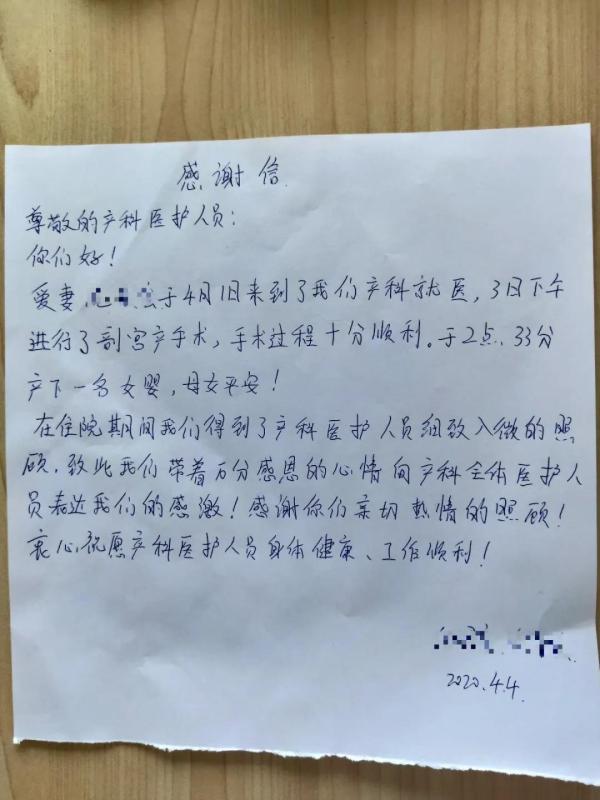 感谢信
尊敬的产科医护人员：
你们好！
爱妻于4月1日来到了我们产科就医，3日下午
进行了剖宫产手术，手术过程十分顺利。于2点33分
产下一名女婴，母女平安！
在住院期间我们得到了产科医护人员细致入微的照
顾，致此我们带着万分感恩的心情向产科全体医护人
员表达我们的感激！感谢你们亲切热情的照顾！
衷心祝愿产科医护人员身体健康、工作顺利！
2020.4.4.